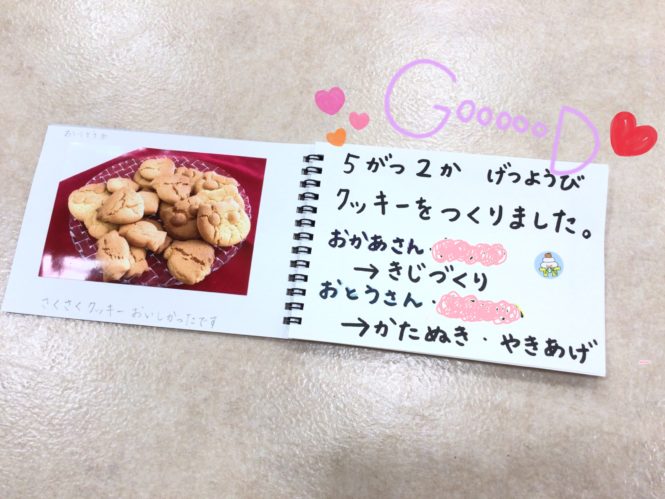 GoooooD
さくさくクッキー おいしかったです
5がつ2か げつようび
クッキーをつくりました。
おかあさん・
→きじづくり
おとうさん・
→かたぬき・やきあげ